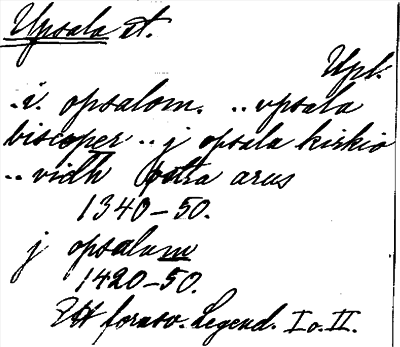 Upsala st.
Upl.
.. i. opsalom. .. vpsala
biscoper .. j opsala kirkio
.. vidh östra arus
1340–50.
j opsalum
1420–50.
Ett fornsv. Legend. I o. II.